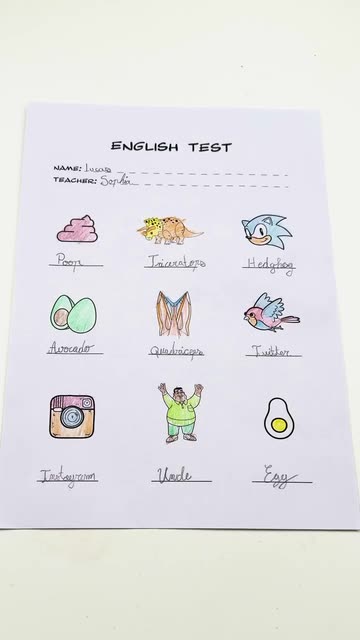 ENGLISH TEST
NAME: Lucas
TEACHER: Sophia
Poop Triceratops Hedghog
Avocado Quadriceps Twitter
Instagram Uncle Egg